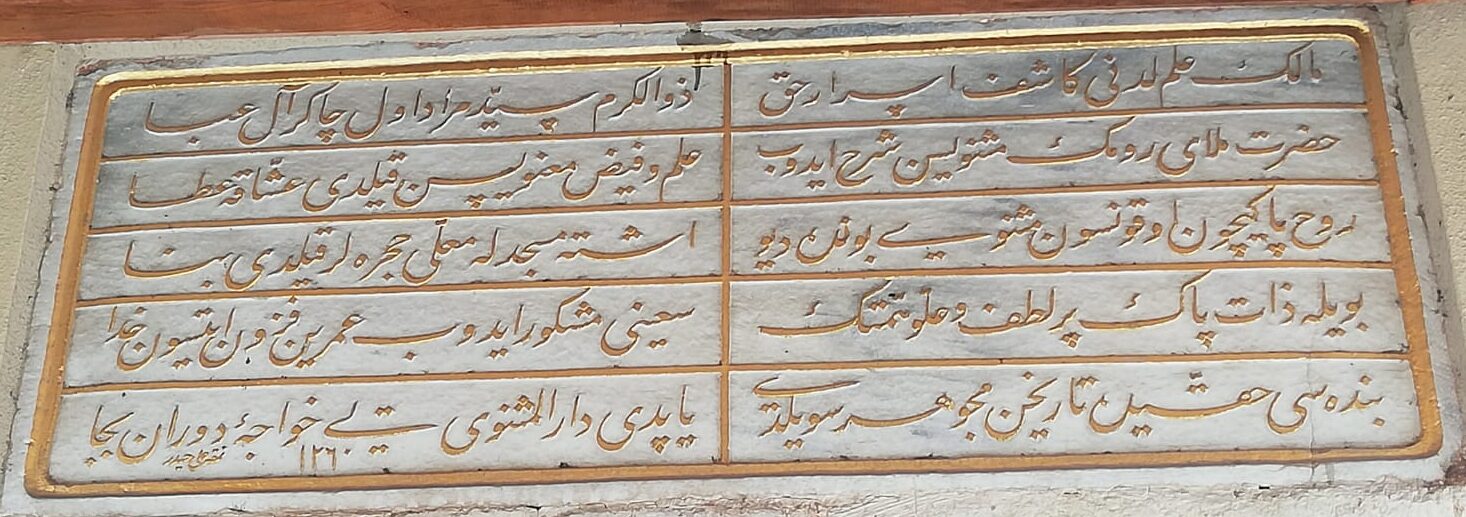 مالك علم لدنی كاشف اسرار حق
ذو الكرم سیّد مراد اول چاكر آل عبا
حضرت ملای رومك مثنویسن شرح ایدوب
علم و فیض معنویسن قیلدی عشّاقه عطا
روح پاكیچون اوقونسون مثنوی بونده دیو
اشته مسجدله معلّی حجره لر قیلدی بنا
بویله ذات پاك پر لطف و علو همّتك
سعینی مشكور ایدوب عمرین فزون ایتسون خدا
بنده سی تاریخن مجوهر سویلدی
یاپدی دار المثنوی یی خواجهٔ دوران بجا
١٢٦٠